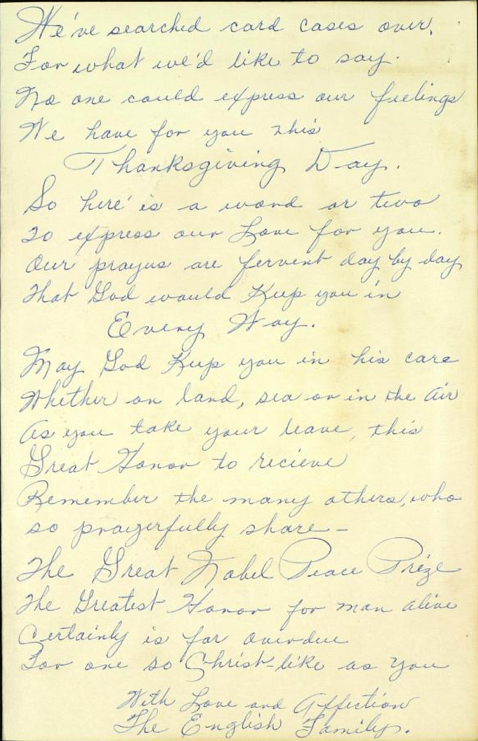 We've searched card cases over,
For what we'd like to say.
No one could express our feelings
We have for you this
Thanksgiving Day.
So here' is a word or two
To express our Love for you.
Our prayers are fervent day by day
That God would Keep you in
Every Way.
May God Keep you in his care
Whether on land, sea or in the air
As you take your leave, this
Great Honor to recieve
Remember the many others, who
so prayerfully share –
The Great Nobel Peace Prize
The Greatest Honor for man alive
Certainly is far overdue
For one so Christ-like as you
With Love and Affection
The English Family.